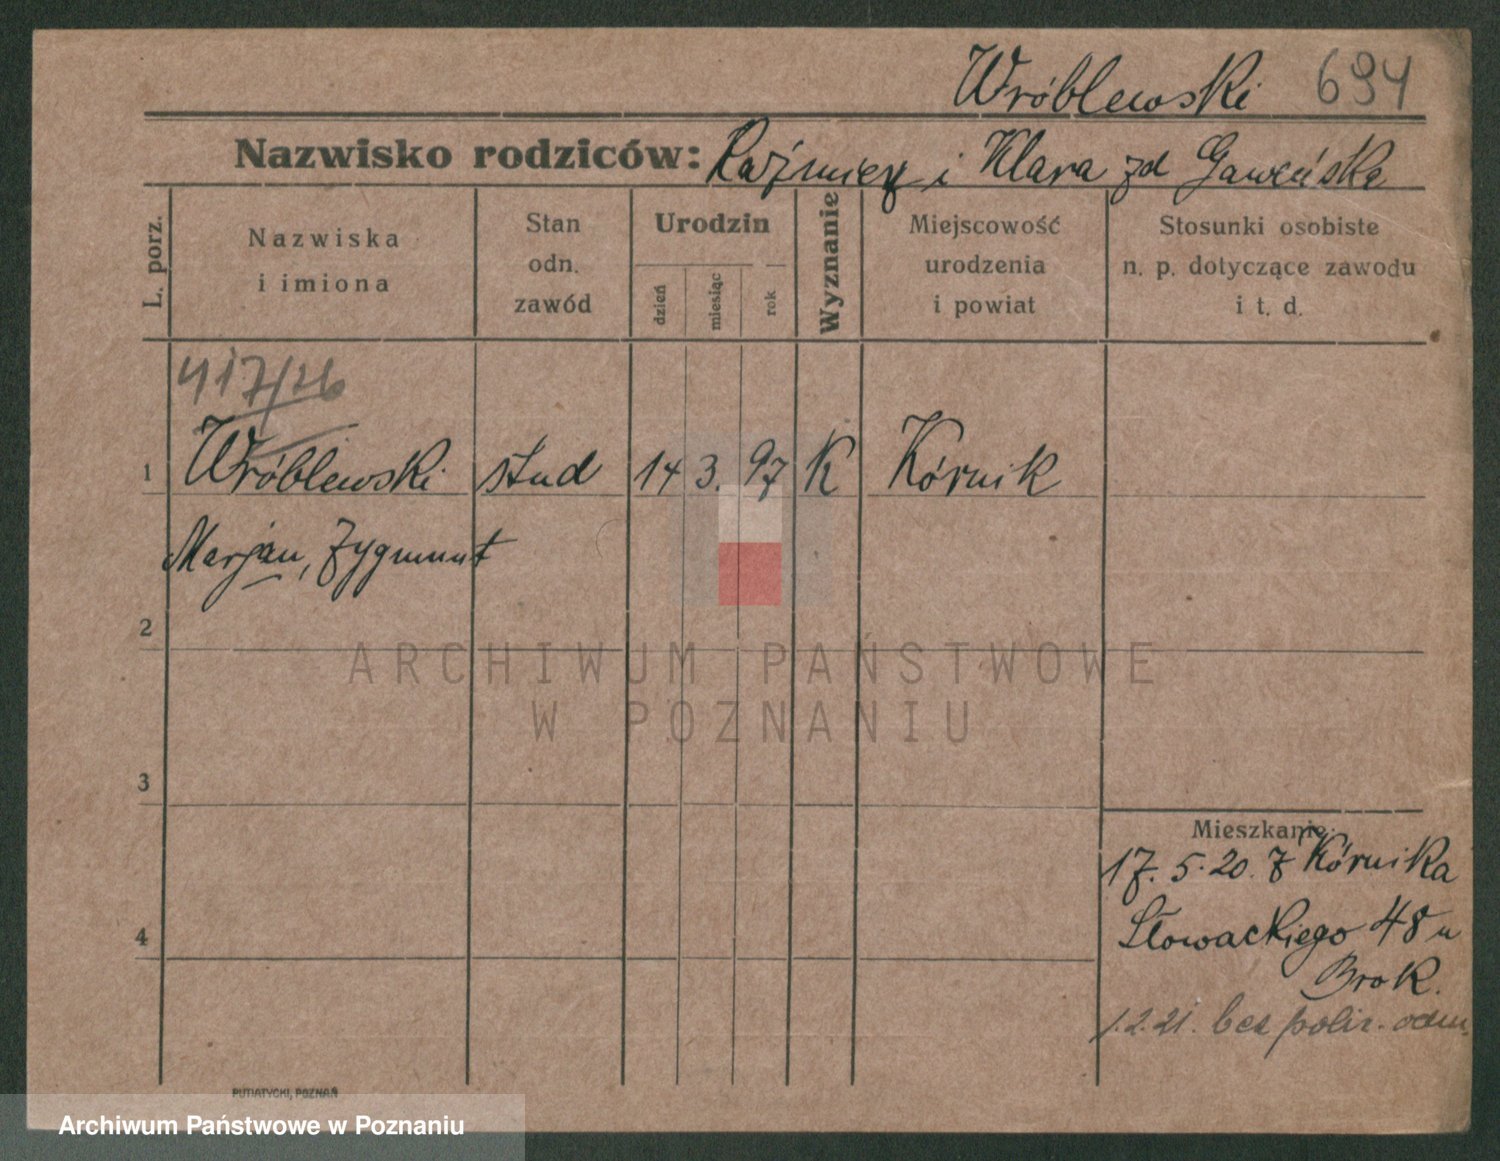 Wróblewski 694
Nazwisko rodziców: Kaźmierz i Klara zd Gaweńska
L. porz.
Nazwiska
i imiona
Stan
odn.
zawód
Urodzin
dzień
miesiąc
rok
Wyznanie
Miejscowość
urodzenia
i powiat
Stosunki osobiste
n. p. dotyczące zawodu
i t. d.
417/26
1 Wróblewski stud 14 3. 97 K Kórnik
Marjan, Zygmunt
2
ARCHIWUM PAŃSTWOWE
W POZNANIU
3
Mieszkanie:
17. 5. 20. z Kórnika
4
Słowackiego 48 u
Brok.
1.2.21. bez polic. odm.
PUTIATYCKI, POZNAŃ
Archiwum Państwowe w Poznaniu